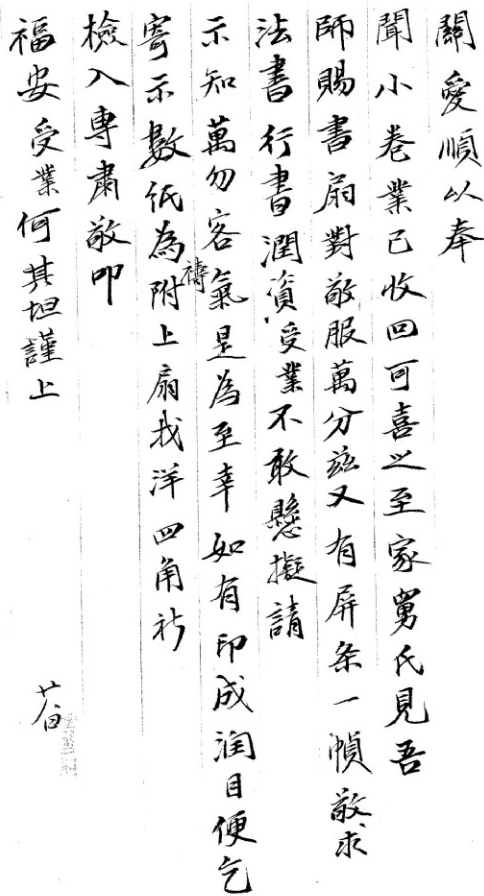 關愛順以奉
聞小卷業已收回可喜之至家舅氏見吾
師賜書扇對敬服萬分茲又有屏条一幀敬求
法書行書潤資受業不敢懸擬請
示知萬勿客氣是為至幸如有印成润目便乞
寄示數紙為禱附上扇找洋四角祈
檢入專肅敬叩
福安受業何其坦謹上